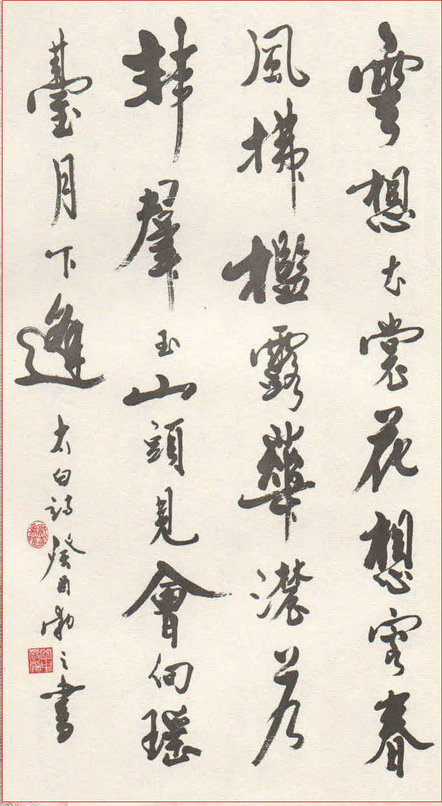 雲想衣裳花想容春
風拂檻露華濃若
非羣玉山頭見會向瑤
臺月下逢 太白詩 癸酉 之書